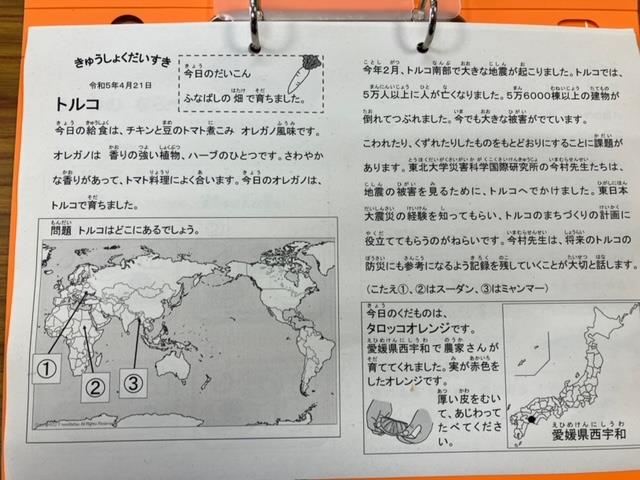 きゅうしょくだいすき
令和5年4月21日
今日のだいこん
ふなばしの 畑で育ちました。
トルコ
今日の給食は、チキンと豆のトマト煮こみ オレガノ風味です。
オレガノは 香りの強い植物、ハーブのひとつです。さわやか
な香りがあって、トマト料理によく合います。今日のオレガノは、
トルコで育ちました。
問題 トルコはどこにあるでしょう。
①
②
③
今年2月、トルコ南部で大きな地震が起こりました。トルコでは、
5万人以上に人が亡くなりました。5万6000棟以上の建物が
倒れてつぶれました。今でも大きな被害がでています。
こわれたり、くずれたりしたものをもとどおりにすることに課題が
あります。東北大学災害科学国際研究所の今村先生たちは、
地震の被害を見るために、トルコへでかけました。東日本
大震災の経験を知ってもらい、トルコのまちづくりの計画に
役立ててもらうのがねらいです。今村先生は、将来のトルコの
防災にも参考になるよう記録を残していくことが大切と話します。
(こたえ①、②はスーダン、③はミャンマー)
今日のくだものは、
タロッコオレンジです。
愛媛県西宇和で農家さんが
育ててくれました。実が赤色を
したオレンジです。
厚い皮をむい
て、あじわって
たべてくださ
い。
愛媛県西宇和